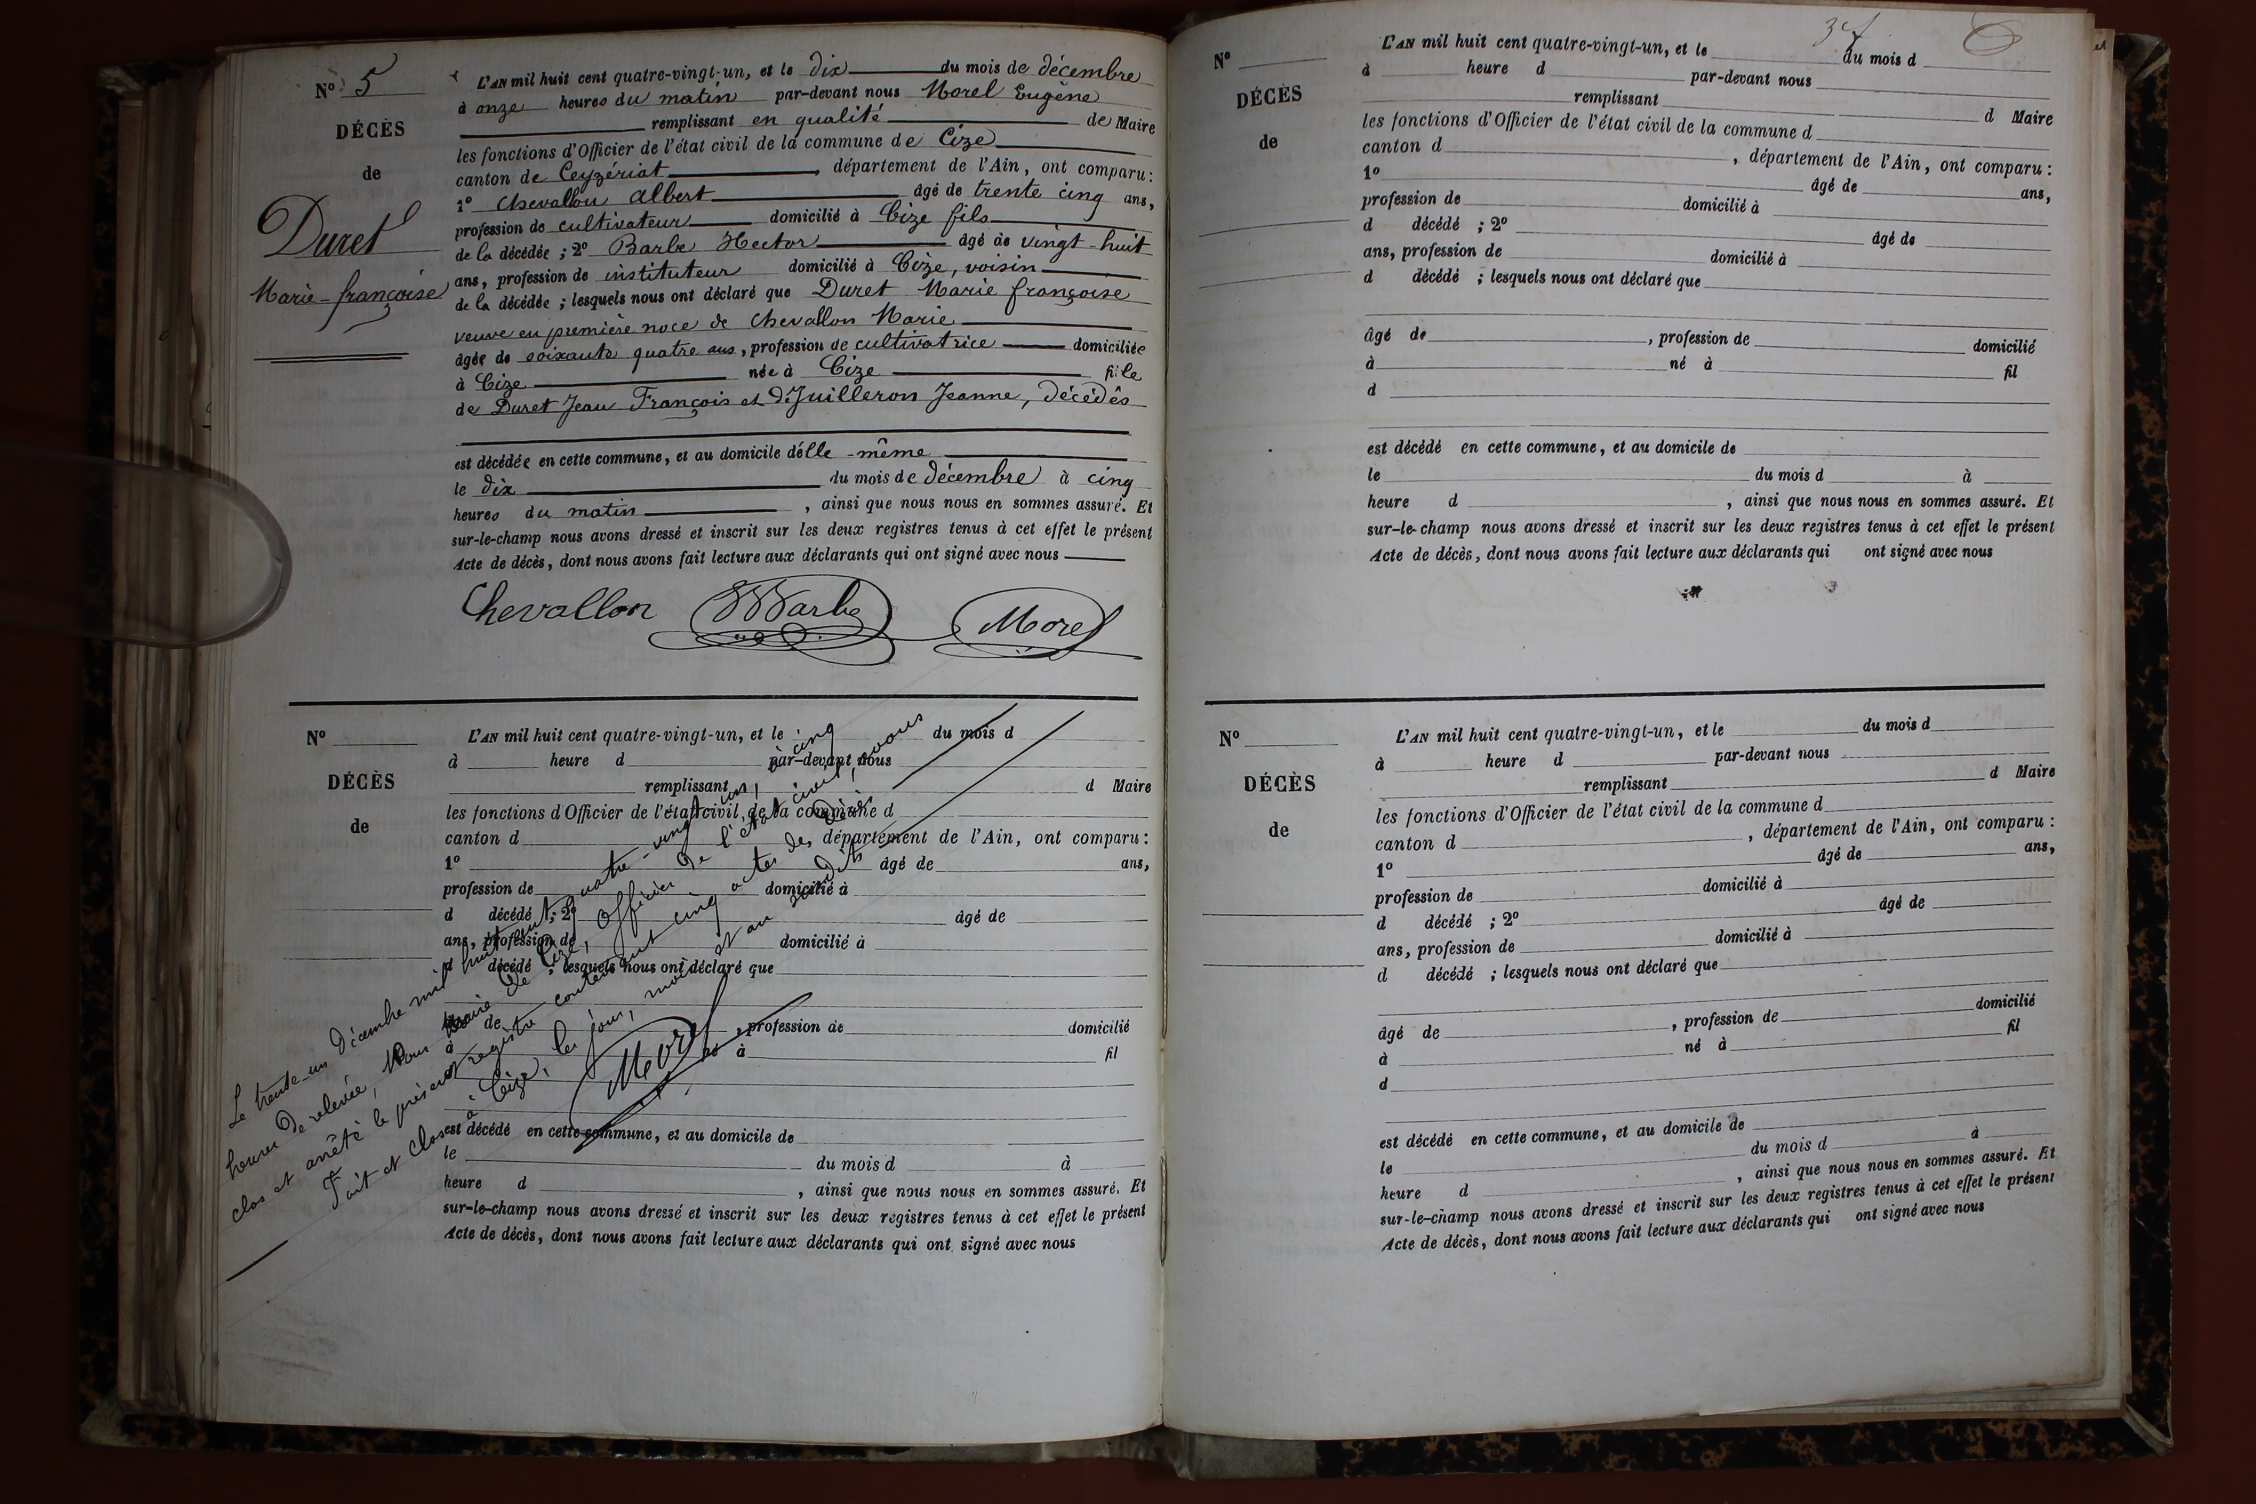 Nº 5
DÉCÈS
de
Duret
Marie-françoise
L'AN mil huit cent quatre-vingt-un, et le dix du mois de décembre
à onze heures du matin par-devant nous Morel Eugène
remplissant en qualité de Maire
les fonctions d'Officier de l'état civil de la commune de Cize
canton de Ceyzériat, département de l'Ain, ont comparu :
1º Chevallon Albert âgé de trente cinq ans,
profession de cultivateur domicilié à Cize fils
de la décédée ; 2º Barbe Hector âgé de vingt-huit
ans, profession de instituteur domicilié à Cize, voisin
de la décédée ; lesquels nous ont déclaré que Duret Marie françoise
veuve en première noce de Chevallon Marie
âgée de soixante quatre ans, profession de cultivatrice domiciliée
à Cize née à Cize fille
de Duret Jean François et de Juilleron Jeanne, décédés
est décédée en cette commune, et au domicile d'elle-même
le dix du mois de décembre à cinq
heures du matin, ainsi que nous nous en sommes assuré. Et
sur-le-champ nous avons dressé et inscrit sur les deux registres tenus à cet effet le présent
Acte de décès, dont nous avons fait lecture aux déclarants qui ont signé avec nous
Chevallon Barbe Morel
Nº
DÉCÈS
de
L'AN mil huit cent quatre-vingt-un, et le du mois d
à heure d par-devant nous
remplissant d Maire
les fonctions d'Officier de l'état civil de la commune d
canton d , département de l'Ain, ont comparu :
1º âgé de ans,
profession de domicilié à
d décédé ; 2º âgé de
ans, profession de domicilié à
d décédé ; lesquels nous ont déclaré que
âgé de , profession de domicilié
à né à fil
d
est décédé en cette commune, et au domicile de
le du mois d à
heure d , ainsi que nous nous en sommes assuré. Et
sur-le-champ nous avons dressé et inscrit sur les deux registres tenus à cet effet le présent
Acte de décès, dont nous avons fait lecture aux déclarants qui ont signé avec nous
Le trente-un décembre mil huit cent quatre-vingt-un, à cinq
heures de relevée, Nous Maire de Cize, officier de l'état civil, avons
clos et arrêté le présent registre contenant cinq actes de décès
Fait et clos à Cize, les jour, mois et an susdits
Morel
37
Nº
DÉCÈS
de
L'AN mil huit cent quatre-vingt-un, et le du mois d
à heure d par-devant nous
remplissant d Maire
les fonctions d'Officier de l'état civil de la commune d
canton d , département de l'Ain, ont comparu :
1º âgé de ans,
profession de domicilié à
d décédé ; 2º âgé de
ans, profession de domicilié à
d décédé ; lesquels nous ont déclaré que
âgé de , profession de domicilié
à né à fil
d
est décédé en cette commune, et au domicile de
le du mois d à
heure d , ainsi que nous nous en sommes assuré. Et
sur-le-champ nous avons dressé et inscrit sur les deux registres tenus à cet effet le présent
Acte de décès, dont nous avons fait lecture aux déclarants qui ont signé avec nous
Nº
DÉCÈS
de
L'AN mil huit cent quatre-vingt-un, et le du mois d
à heure d par-devant nous
remplissant d Maire
les fonctions d'Officier de l'état civil de la commune d
canton d , département de l'Ain, ont comparu :
1º âgé de ans,
profession de domicilié à
d décédé ; 2º âgé de
ans, profession de domicilié à
d décédé ; lesquels nous ont déclaré que
âgé de , profession de domicilié
à né à fil
d
est décédé en cette commune, et au domicile de
le du mois d à
heure d , ainsi que nous nous en sommes assuré. Et
sur-le-champ nous avons dressé et inscrit sur les deux registres tenus à cet effet le présent
Acte de décès, dont nous avons fait lecture aux déclarants qui ont signé avec nous